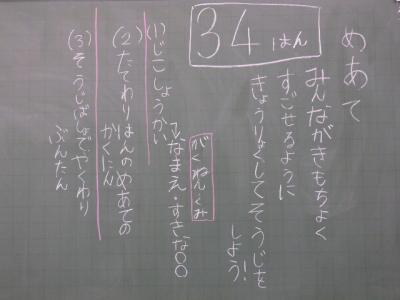 34はん
めあて
みんながきもちよく
すごせるように
きょうりょくしてそうじを
しよう!
がくねん・くみ
(1)じこしょうかい
↳なまえ・すきな○○
(2)たてわりはんのめあての
かくにん
(3)そうじばしょでやくわり
ぶんたん